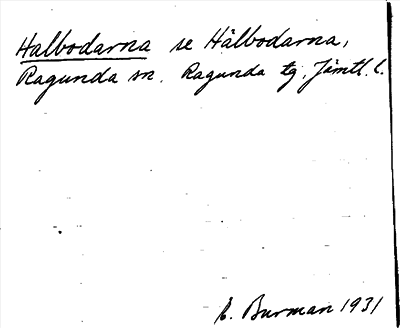 Halbodarna se Hålbodarna,
Ragunda sn. Ragunda tg, Jämtl. l.
E. Burman 1931